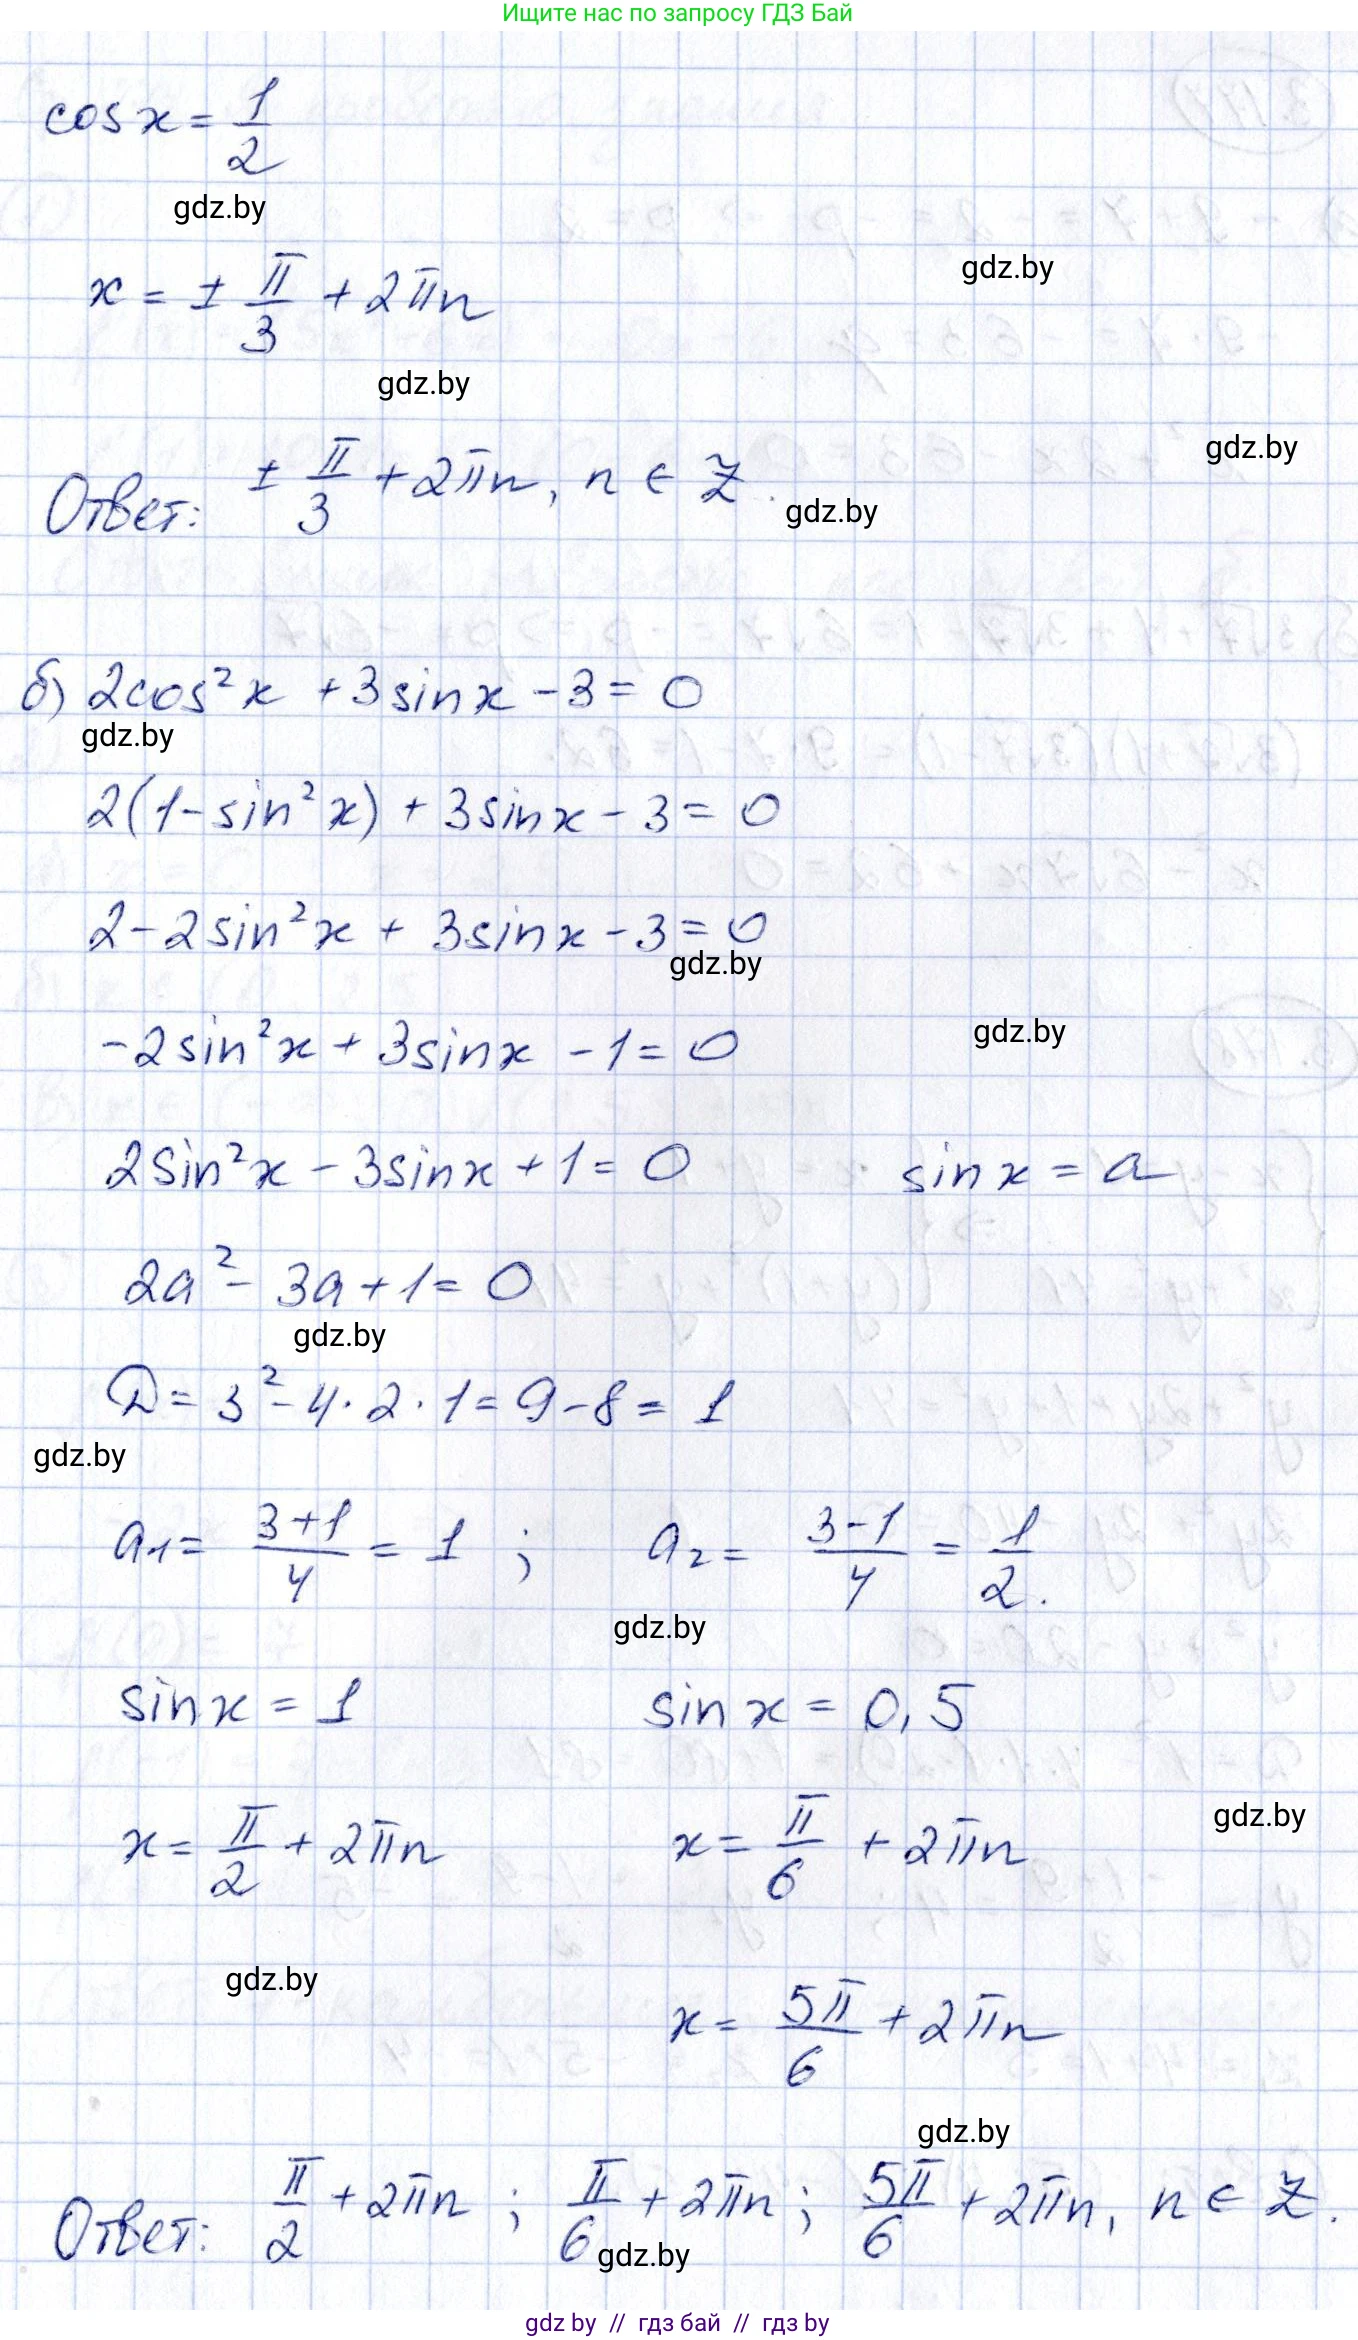 Ищите нас по запросу ГДЗ Бай
cos x = 1/2
gdz.by
gdz.by
x = ± π/3 + 2πn
gdz.by
gdz.by
Ответ: ± π/3 + 2πn, n ∈ Z.
gdz.by
б) 2cos²x + 3sinx - 3 = 0
gdz.by
2(1 - sin²x) + 3sinx - 3 = 0
2 - 2sin²x + 3sinx - 3 = 0
gdz.by
gdz.by
-2sin²x + 3sinx - 1 = 0
2sin²x - 3sinx + 1 = 0 sinx = a
2a² - 3a + 1 = 0
gdz.by
D = 3² - 4·2·1 = 9 - 8 = 1
gdz.by
a₁ = (3+1)/4 = 1 ; a₂ = (3-1)/4 = 1/2.
gdz.by
sinx = 1 sinx = 0,5
gdz.by
x = π/2 + 2πn x = π/6 + 2πn
gdz.by
x = 5π/6 + 2πn
gdz.by
Ответ: π/2 + 2πn ; π/6 + 2πn ; 5π/6 + 2πn, n ∈ Z.
gdz.by
gdz by // гдз бай // гдз by